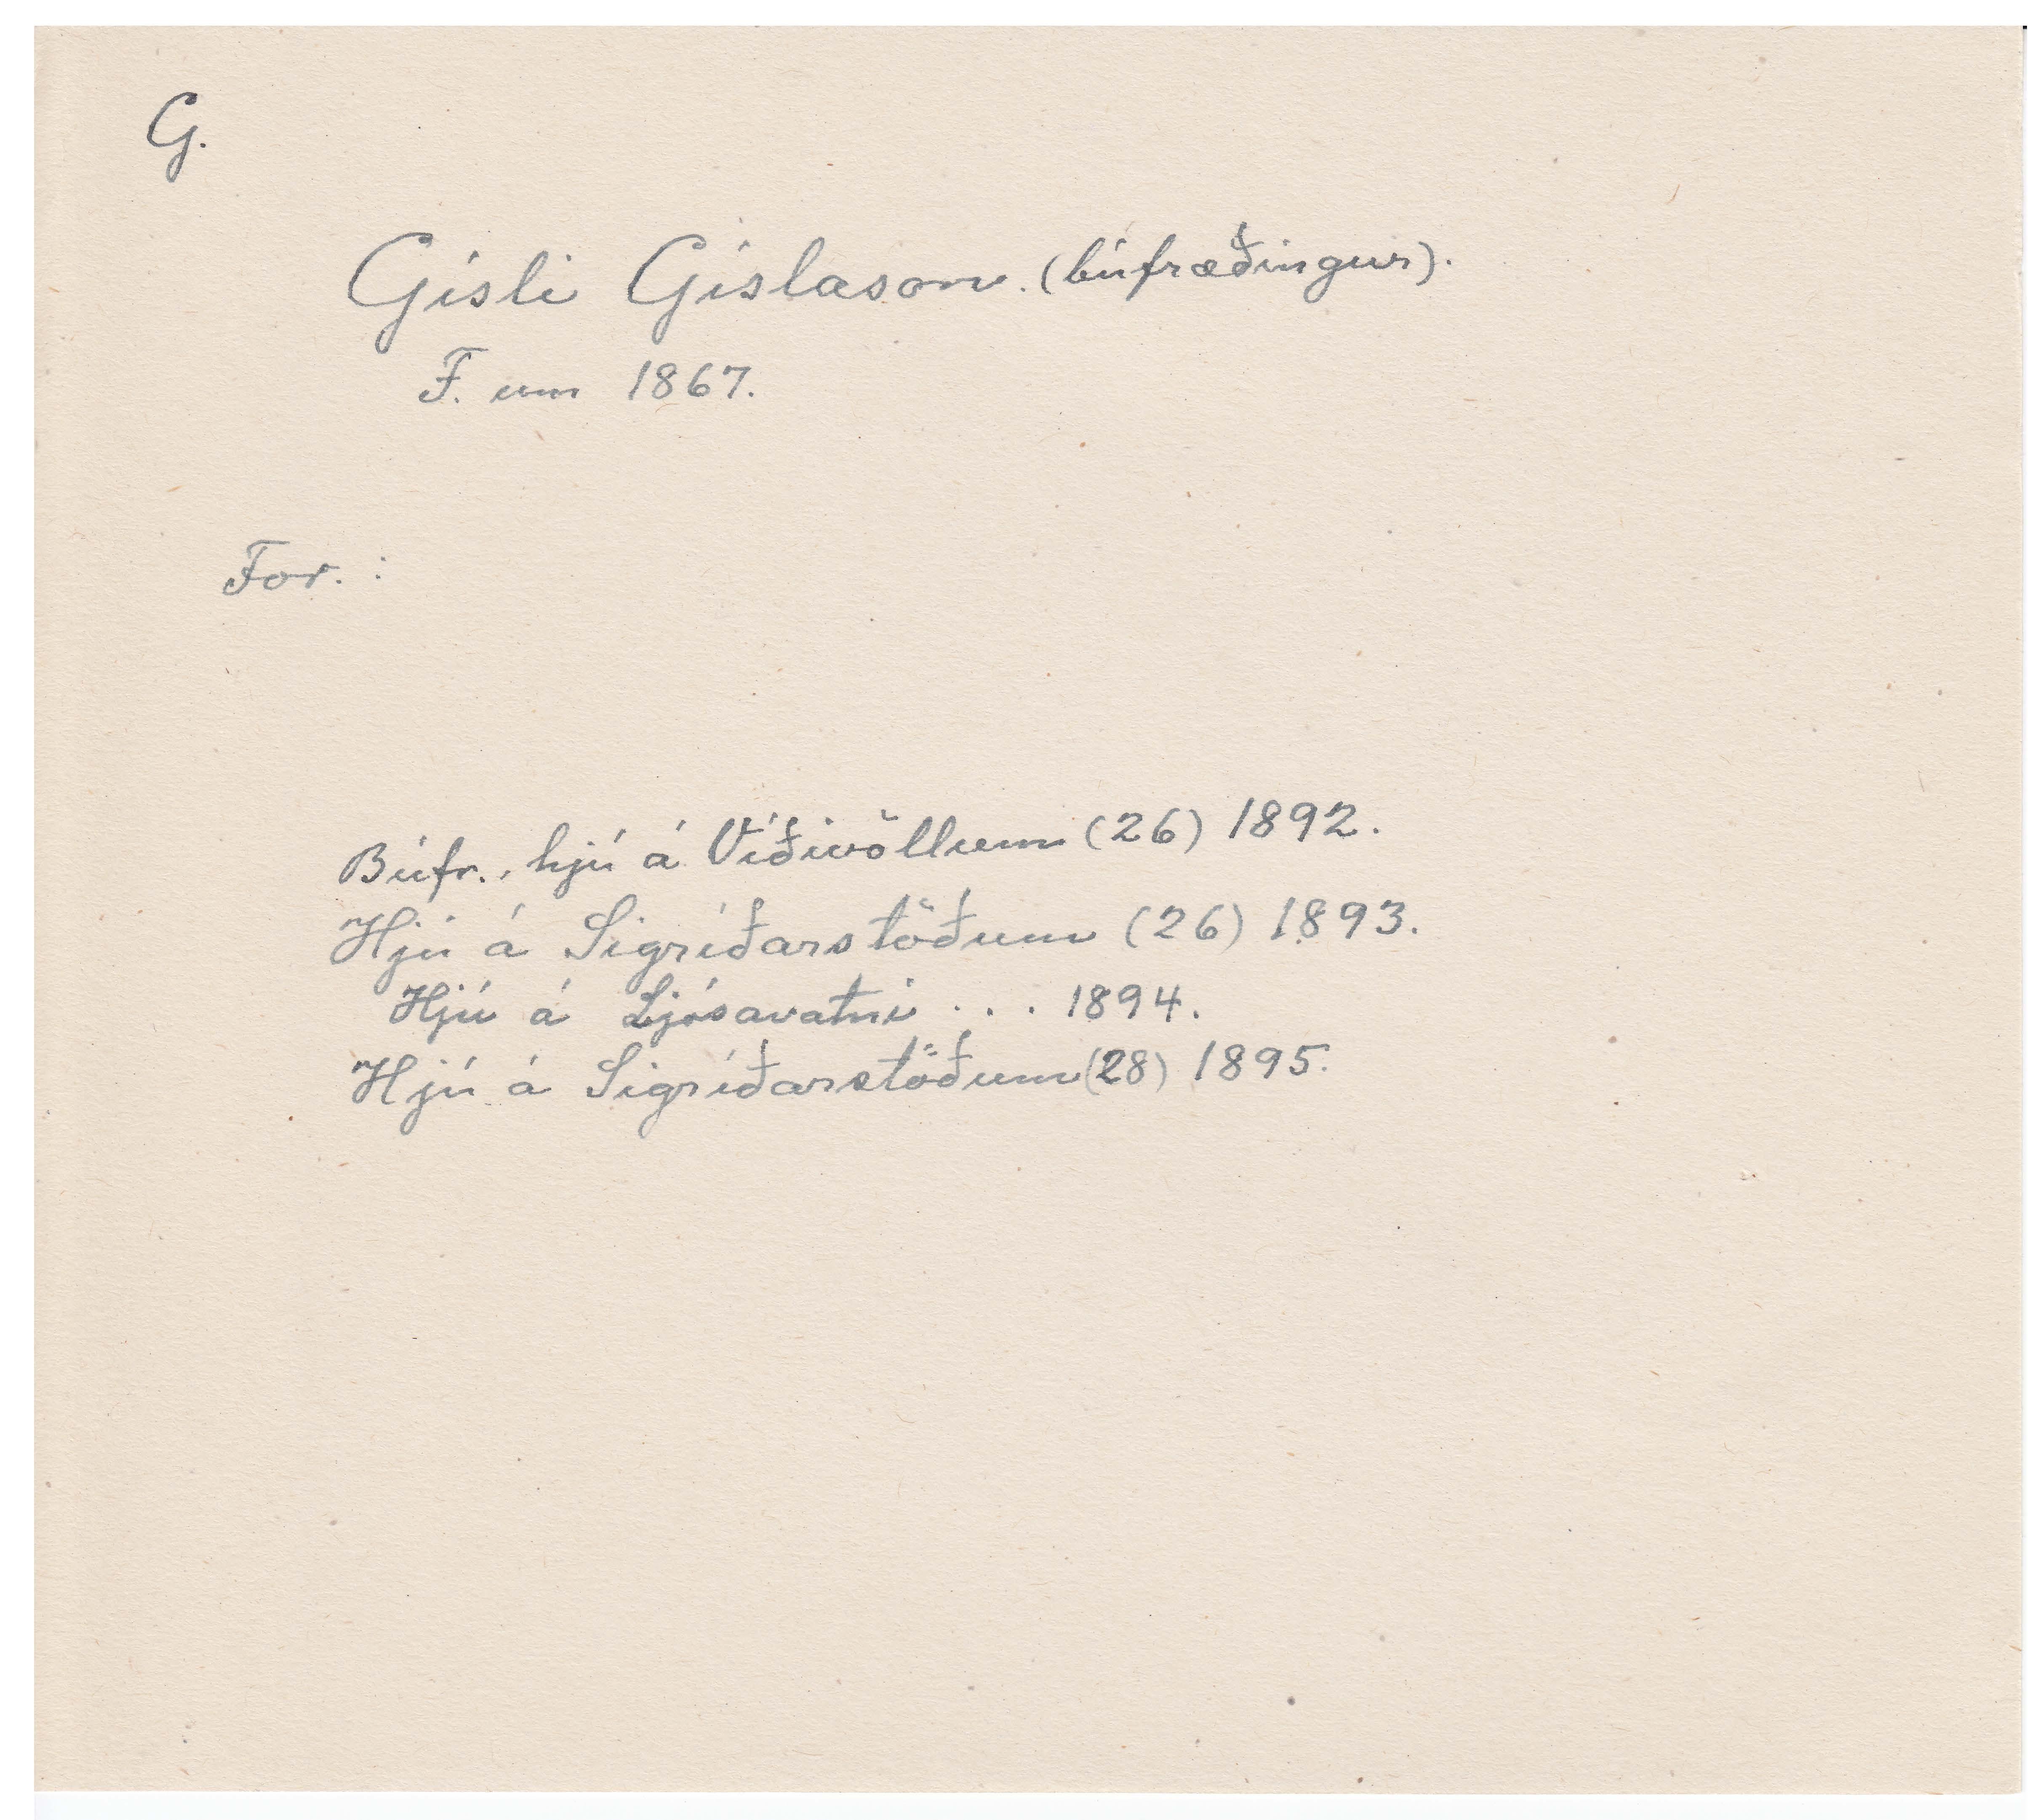 G.
Gísli Gíslason. (búfræðingur).
F. um 1867.
For. :
Búfr., hjú á Víðivöllum (26) 1892.
Hjú á Sigríðarstöðum (26) 1893.
Hjú á Ljósavatni . . . 1894.
Hjú á Sigríðarstöðum (28) 1895.